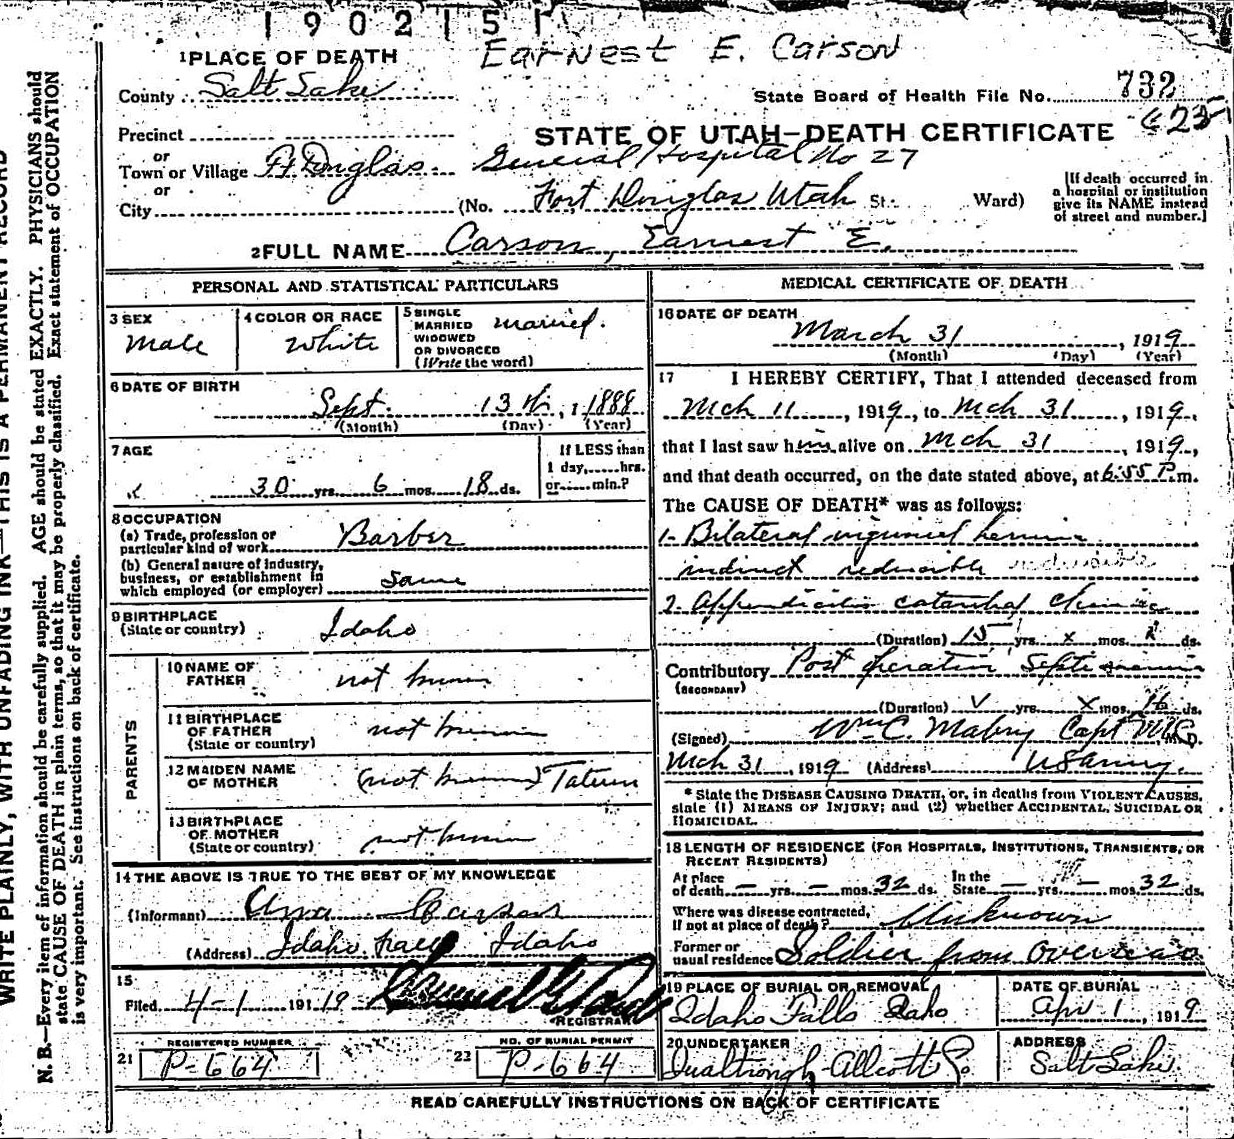 190215
Earnest E. Carson
1 PLACE OF DEATH
County Salt Lake
State Board of Health File No. 732
625
Precinct
STATE OF UTAH—DEATH CERTIFICATE
or
Town or Village Ft Douglas General Hospital No 27
or
City (No. Fort Douglas Utah St. Ward)
[If death occurred in a hospital or institution give its NAME instead of street and number.]
2 FULL NAME Carson, Earnest E.
PERSONAL AND STATISTICAL PARTICULARS
3 SEX Male
4 COLOR OR RACE White
5 SINGLE MARRIED WIDOWED OR DIVORCED (Write the word) married.
6 DATE OF BIRTH
Sept. 13th, 1 1888
(Month) (Day) (Year)
7 AGE
30 yrs. 6 mos. 18 ds.
If LESS than 1 day, hrs. or min.?
8 OCCUPATION
(a) Trade, profession or particular kind of work Barber
(b) General nature of industry, business, or establishment in which employed (or employer) Same
9 BIRTHPLACE (State or country) Idaho
PARENTS
10 NAME OF FATHER not known
11 BIRTHPLACE OF FATHER (State or country) not known
12 MAIDEN NAME OF MOTHER (not known) Tatum
13 BIRTHPLACE OF MOTHER (State or country) not known
14 THE ABOVE IS TRUE TO THE BEST OF MY KNOWLEDGE
(Informant) Carson
(Address) Idaho Idaho
15
Filed 4-1 191 19
REGISTRAR
REGISTERED NUMBER
21 P-664
NO. OF BURIAL PERMIT
22 P-664
MEDICAL CERTIFICATE OF DEATH
16 DATE OF DEATH
March 31, 1919
(Month) (Day) (Year)
17 I HEREBY CERTIFY, That I attended deceased from
Mch 11, 1919, to Mch 31, 1919,
that I last saw him alive on Mch 31, 1919,
and that death occurred, on the date stated above, at 6:55 P.m.
The CAUSE OF DEATH* was as follows:
1. Bilateral inguinal hernia
indirect reducible
2. Appendicitis catarrhal chronic
(Duration) 15 yrs. x mos. x ds.
Contributory Post operative
(SECONDARY)
(Duration) yrs. x mos. 16 ds.
(Signed) Wm C. Mabry Capt M.C. M.D.
Mch 31, 1919 (Address) US Army.
* State the DISEASE CAUSING DEATH, or, in deaths from VIOLENT CAUSES, state (1) MEANS OF INJURY; and (2) whether ACCIDENTAL, SUICIDAL OR HOMICIDAL.
18 LENGTH OF RESIDENCE (FOR HOSPITALS, INSTITUTIONS, TRANSIENTS, OR RECENT RESIDENTS)
At place of death — yrs. — mos. 32 ds. In the State — yrs. — mos. 32 ds.
Where was disease contracted, if not at place of death? Unknown
Former or usual residence Soldier from overseas
19 PLACE OF BURIAL OR REMOVAL
Idaho Falls Idaho
DATE OF BURIAL
Apr 1, 1919
20 UNDERTAKER
ADDRESS
Salt Lake.
READ CAREFULLY INSTRUCTIONS ON BACK OF CERTIFICATE
WRITE PLAINLY, WITH UNFADING INK—THIS IS A PERMANENT RECORD
N. B.—Every item of information should be carefully supplied. AGE should be stated EXACTLY. PHYSICIANS should
state CAUSE OF DEATH in plain terms, so that it may be properly classified. Exact statement of OCCUPATION
is very important. See instructions on back of certificate.